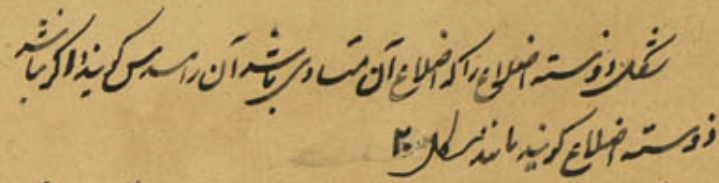 شکل ذو سته اضلاع را که اضلاع آن متساوی باشد آن را مسدس کویند و اکر نباشد
ذو سته اضلاع کویند مانند شکل ۲۰